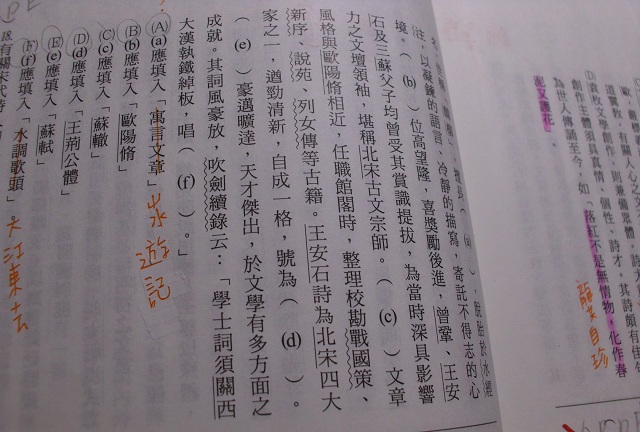 道巽牧，有關人心
(D)袁枚文學創作，則兼備眾體
創作主體須具真情、個性、詩才，其詩頗有
為世人傳誦至今，如「落紅不是無情物，化作春
泥又護花」。
龔自珍
擅長(a)，脫胎於水經
注，以凝鍊的語言，冷靜的描寫，寄託不得志的心
境。(b)位高望隆，喜獎勵後進，曾鞏、王安
石及三蘇父子均曾受其賞識提拔，為當時深具影響
力之文壇領袖，堪稱北宋古文宗師。(c)文章
風格與歐陽脩相近，任職館閣時，整理校勘戰國策、
新序、說苑、列女傳等古籍。王安石詩為北宋四大
家之一，遒勁清新，自成一格，號為(d)。
(e)豪邁曠達，天才傑出，於文學有多方面之
成就。其詞風豪放，吹劍續錄云：「學士詞須關西
大漢執鐵綽板，唱(f)。」
(A)(a)應填入「寓言文章」永遊記
(B)(b)應填入「歐陽脩」
(C)(c)應填入「蘇轍」
(D)(d)應填入「王荊公體」
(E)(e)應填入「蘇軾」
(F)(f)應填入「水調歌頭」。大江東去